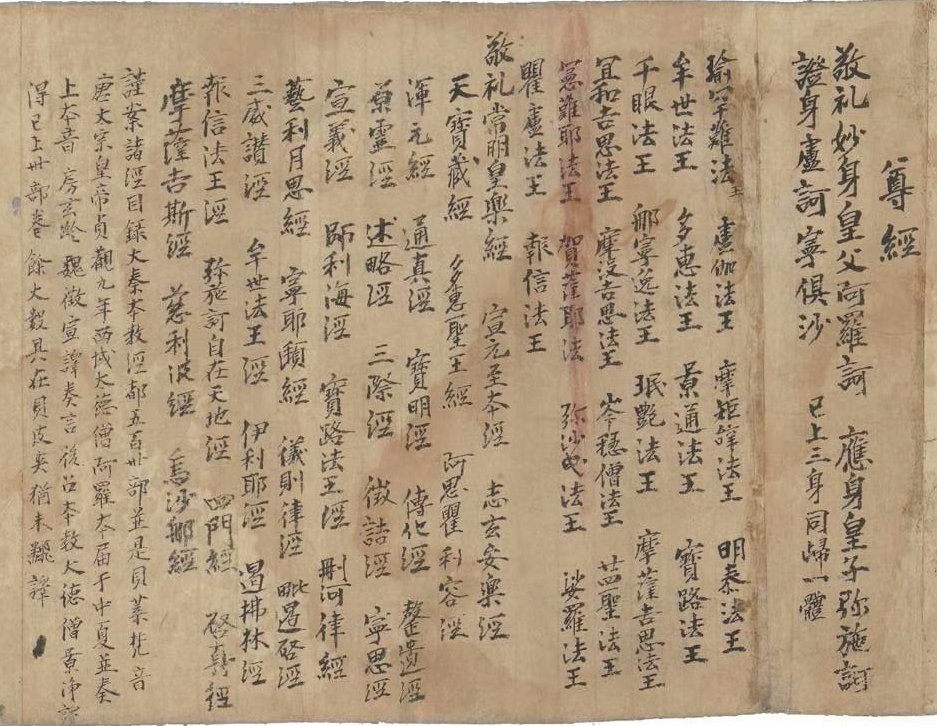 尊經
敬礼妙身皇父阿羅訶 應身皇子弥施訶
證身盧訶寧俱沙 已上三身同歸一體
瑜罕難法王 盧伽法王 摩矩辭法王 明泰法王
牟世法王 多惠法王 景通法王 寶路法王
千眼法王 那寧逸法王 珉艶法王 摩薩吉思法王
宜和吉思法王 摩没吉思法王 岑穩僧法王 廿四聖法王
憲難耶法王 賀薩耶法 弥沙曳法王 娑羅法王
瞿盧法王 報信法王
敬礼常明皇樂經 宣元至本經 志玄安樂經
天寶藏經 多惠聖王經 阿思瞿利容經
渾元經 通真經 寶明經 傳化經 罄遺經
原靈經 述略經 三際經 徵詰經 寧思經
宣義經 師利海經 寶路法王經 刪河律經
藝利月思經 寧耶頲經 儀則律經 毗遏啓經
三威讚經 牟世法王經 伊利耶經 遏拂林經
報信法王經 弥施訶自在天地經 四門經 啓真經
摩薩吉斯經 慈利波經 烏沙那經
謹案諸經目錄大秦本教經都五百卅部並是貝葉梵音
唐太宗皇帝貞觀九年西域大德僧阿羅本屆于中夏並奏
上本音 房玄齡 魏徵宣譯奏言 後召本教大德僧景净譯
得已上卅部卷 餘大數具在貝皮夾猶未飜譯